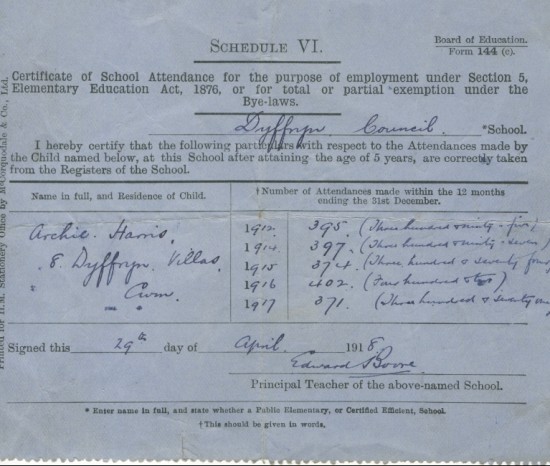 Board of Education.
Form 144 (c).
SCHEDULE VI.
Certificate of School Attendance for the purpose of employment under Section 5,
Elementary Education Act, 1876, or for total or partial exemption under the
Bye-laws.
Dyffryn Council *School.
I hereby certify that the following particulars with respect to the Attendances made by
the Child named below, at this School after attaining the age of 5 years, are correctly taken
from the Registers of the School.
Name in full, and Residence of Child.
† Number of Attendances made within the 12 months
ending the 31st December.
Archie Harris, 1912. 395. (Three hundred & ninety-five)
1914. 397. (Three hundred & ninety-seven)
8. Dyffryn Villas, 1915 374. (Three hundred & seventy four
" Cwm. 1916 402. (Four hundred & two)
1917 371. (Three hundred & seventy one
Signed this 29th day of April 1918.
Edward Boore.
Principal Teacher of the above-named School.
* Enter name in full, and state whether a Public Elementary, or Certified Efficient, School.
† This should be given in words.
Printed for H.M. Stationery Office by McCorquodale & Co., Ltd.